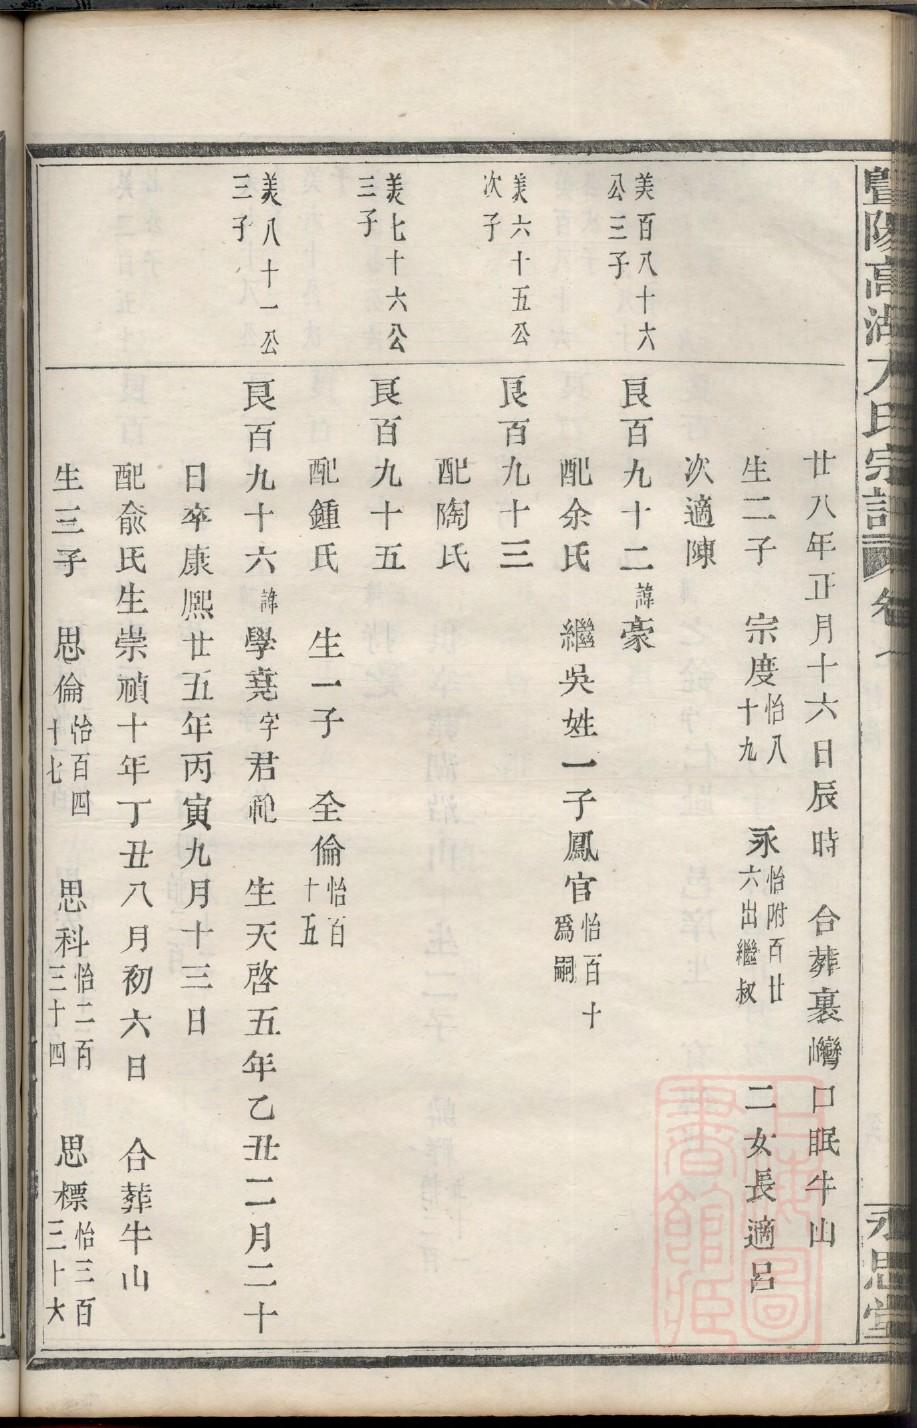 暨陽高湖方氏宗譜
卷
永思堂
廿八年正月十六日辰時　合葬裏灣口眠牛山
生二子　宗度怡八十九　永怡附百廿六出繼叔　二女長適呂
次適陳
美百八十六公三子
艮百九十二諱豪
配余氏　繼吳姓一子鳳官怡百十爲嗣
美六十五公次子
艮百九十三
配陶氏
美七十六公三子
艮百九十五
配鍾氏　生一子　全倫怡百十五
美八十一公三子
艮百九十六諱學堯字君祀　生天啓五年乙丑二月二十
日卒康熙廿五年丙寅九月十三日
配俞氏生崇禎十年丁丑八月初六日　合葬牛山
生三子　思倫怡百四十七　思科怡二百三十四　思標怡三百三十六
上海圖書館藏